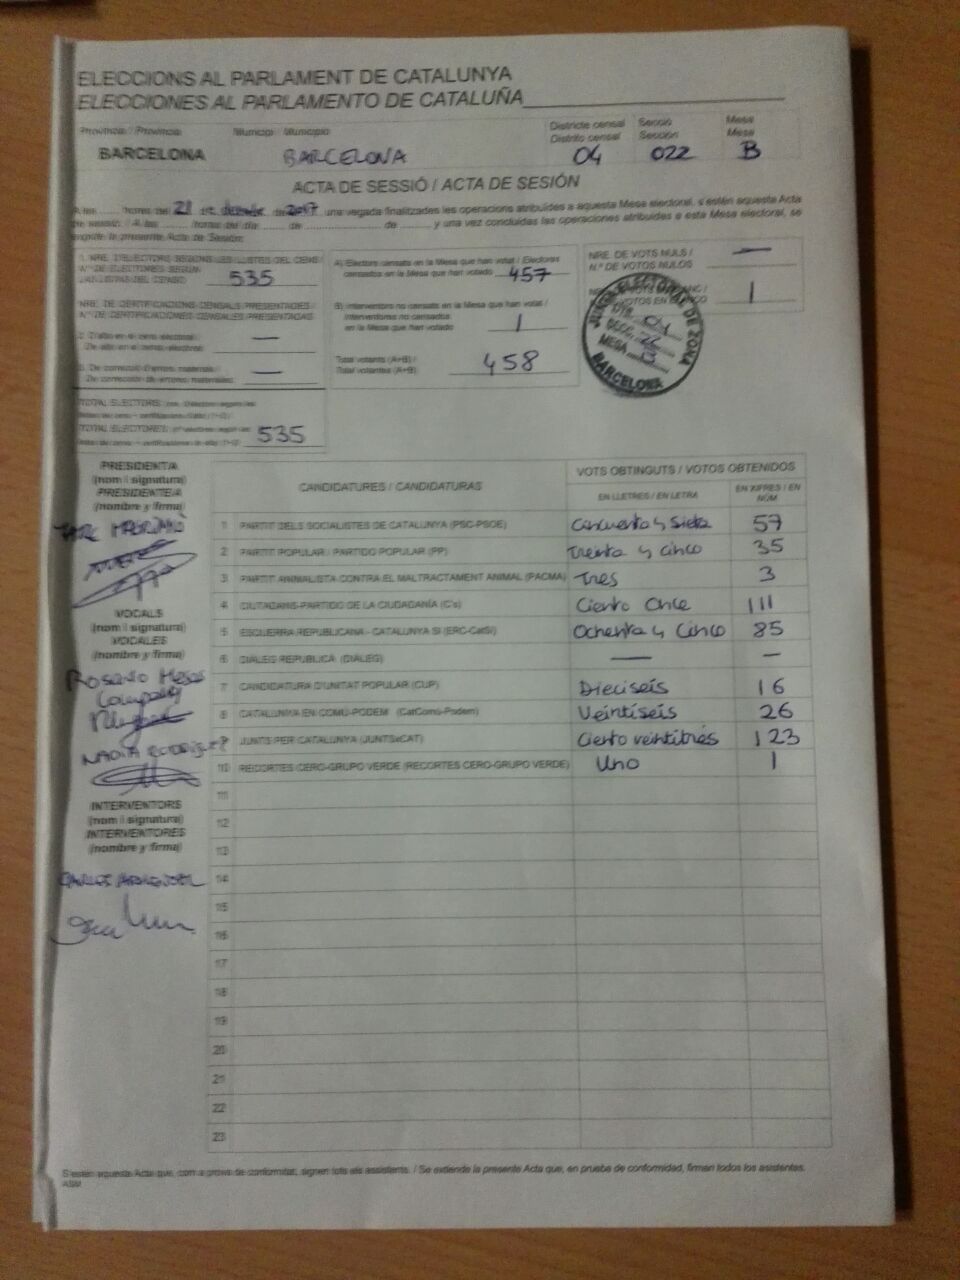 ELECCIONS AL PARLAMENT DE CATALUNYA
ELECCIONES AL PARLAMENTO DE CATALUÑA
Província / Provincia
Municipi Municipio
Districte censal
Distrito censal
Secció
Sección
Mesa
Mesa
BARCELONA BARCELONA 04 022 B
ACTA DE SESSIÓ / ACTA DE SESIÓN
A les ...... hores del 21 de de 2017 una vegada finalitzades les operacions atribuïdes a aquesta Mesa electoral, s'estén aquesta Acta
de sessió. / A las ...... horas del día ...... de ...... de ...... y una vez concluidas las operaciones atribuidas a esta Mesa electoral, se
expide la presente Acta de Sesión:
1. NRE. D'ELECTORS SEGONS LES LLISTES DEL CENS /
N.º DE ELECTORES SEGÚN
LAS LISTAS DEL CENSO
535
NRE. DE CERTIFICACIONS CENSALS PRESENTADES /
N.º DE CERTIFICACIONES CENSALES PRESENTADAS
D'alta en el cens electoral /
De alta en el censo electoral
—
De correcció d'errors materials /
De corrección de errores materiales
—
TOTAL ELECTORS
TOTAL ELECTORES
535
A) Electors censats en la Mesa que han votat / Electores
censados en la Mesa que han votado
457
B) Interventors no censats en la Mesa que han votat /
Interventores no censados
en la Mesa que han votado
1
Total votants (A+B) /
Total votantes (A+B)
458
NRE. DE VOTS NULS /
N.º DE VOTOS NULOS
—
VOTOS EN BLANCO
1
JUNTA ELECTORAL DE ZONA
BARCELONA
DTE. 04
SECC. 22
MESA B
PRESIDENT/A
(nom i signatura)
PRESIDENTE/A
(nombre y firma)
VOCALS
(nom i signatura)
VOCALES
(nombre y firma)
Rosario Mesas
NADIA RODRIGUEZ
INTERVENTORS
(nom i signatura)
INTERVENTORES
(nombre y firma)
CARLOS
CANDIDATURES / CANDIDATURAS
VOTS OBTINGUTS / VOTOS OBTENIDOS
EN LLETRES / EN LETRA
EN XIFRES / EN
NÚM.
1 PARTIT DELS SOCIALISTES DE CATALUNYA (PSC-PSOE) Cincuenta y Siete 57
2 PARTIT POPULAR / PARTIDO POPULAR (PP) Treinta y cinco 35
3 PARTIT ANIMALISTA CONTRA EL MALTRACTAMENT ANIMAL (PACMA) Tres 3
4 CIUTADANS-PARTIDO DE LA CIUDADANÍA (C's) Ciento Once 111
5 ESQUERRA REPUBLICANA - CATALUNYA SÍ (ERC-CatSí) Ochenta y Cinco 85
6 DIÀLEG REPÚBLICA (DIÀLEG) — —
7 CANDIDATURA D'UNITAT POPULAR (CUP) Dieciseis 16
8 CATALUNYA EN COMÚ-PODEM (CatComú-Podem) Veintiseis 26
9 JUNTS PER CATALUNYA (JUNTSxCAT) Ciento veintitrés 123
10 RECORTES CERO-GRUPO VERDE (RECORTES CERO-GRUPO VERDE) Uno 1
11
12
13
14
15
16
17
18
19
20
21
22
23
S'estén aquesta Acta que, com a prova de conformitat, signen tots els assistents. / Se extiende la presente Acta que, en prueba de conformidad, firman todos los asistentes.